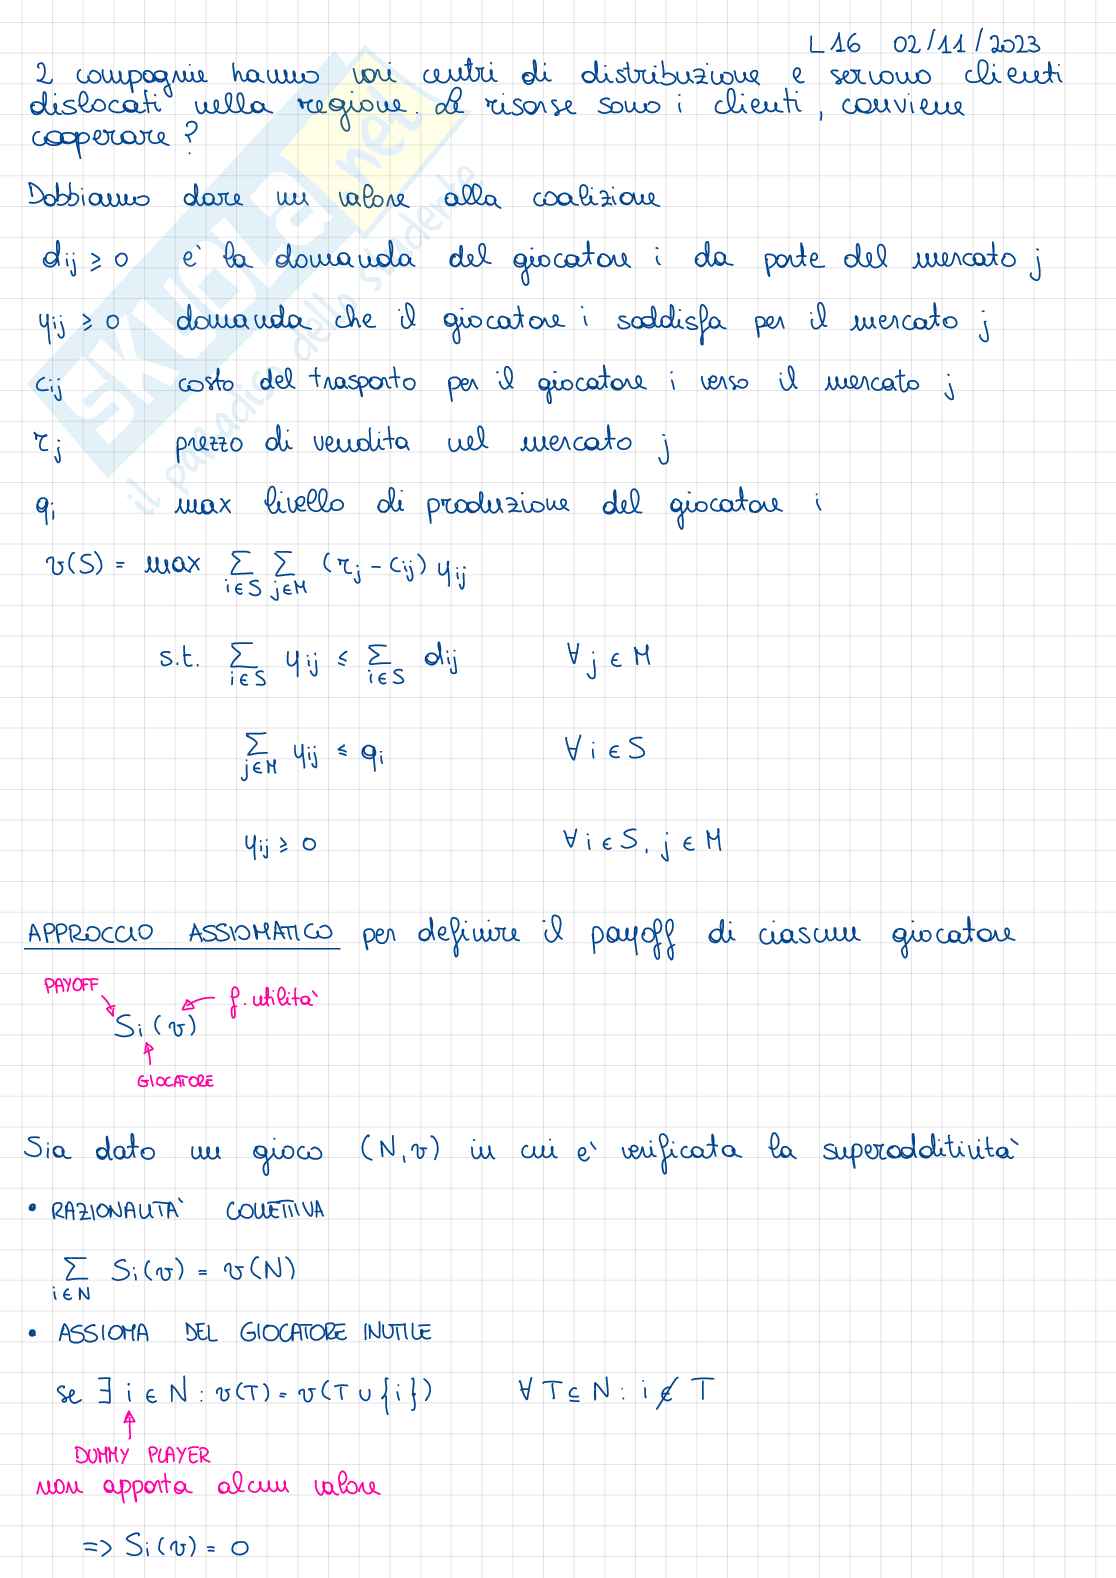 L16 02/11/2023
2 compagnie hanno vari centri di distribuzione e servono clienti
dislocati nella regione. Le risorse sono i clienti, conviene
cooperare?
Dobbiamo dare un valore alla coalizione
dij ≥ 0 è la domanda del giocatore i da parte del mercato j
yij ≥ 0 domanda che il giocatore i soddisfa per il mercato j
cij costo del trasporto per il giocatore i verso il mercato j
rj prezzo di vendita nel mercato j
qi max livello di produzione del giocatore i
v(S) = max Σ i∈S Σ j∈M (rj - cij) yij
s.t. Σ i∈S yij ≤ Σ i∈S dij ∀ j ∈ M
Σ j∈M yij ≤ qi ∀ i ∈ S
yij ≥ 0 ∀ i ∈ S, j ∈ M
APPROCCIO ASSIOMATICO per definire il payoff di ciascun giocatore
PAYOFF
f. utilità
Si(v)
GIOCATORE
Sia dato un gioco (N,v) in cui è verificata la superadditività
• RAZIONALITÀ COLLETTIVA
Σ i∈N Si(v) = v(N)
• ASSIOMA DEL GIOCATORE INUTILE
se ∃ i ∈ N : v(T) = v(T ∪ {i}) ∀ T ⊆ N : i ∉ T
DUMMY PLAYER
non apporta alcun valore
=> Si(v) = 0
SKUOLA.net
il paradiso dello studente